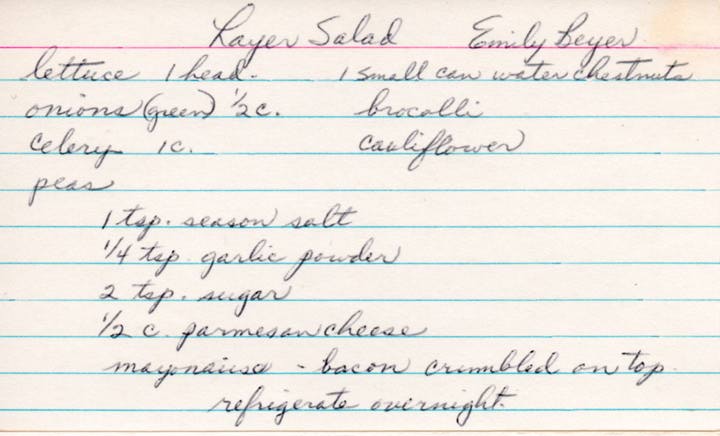 Layer Salad Emily Beyer
lettuce 1 head. 1 small can water chestnuts
onions (green) 1/2 c. brocolli
celery 1 c. cauliflower
peas
1 tsp. season salt
1/4 tsp. garlic powder
2 tsp. sugar
1/2 c. parmesan cheese
mayonaise - bacon crumbled on top.
refrigerate overnight.